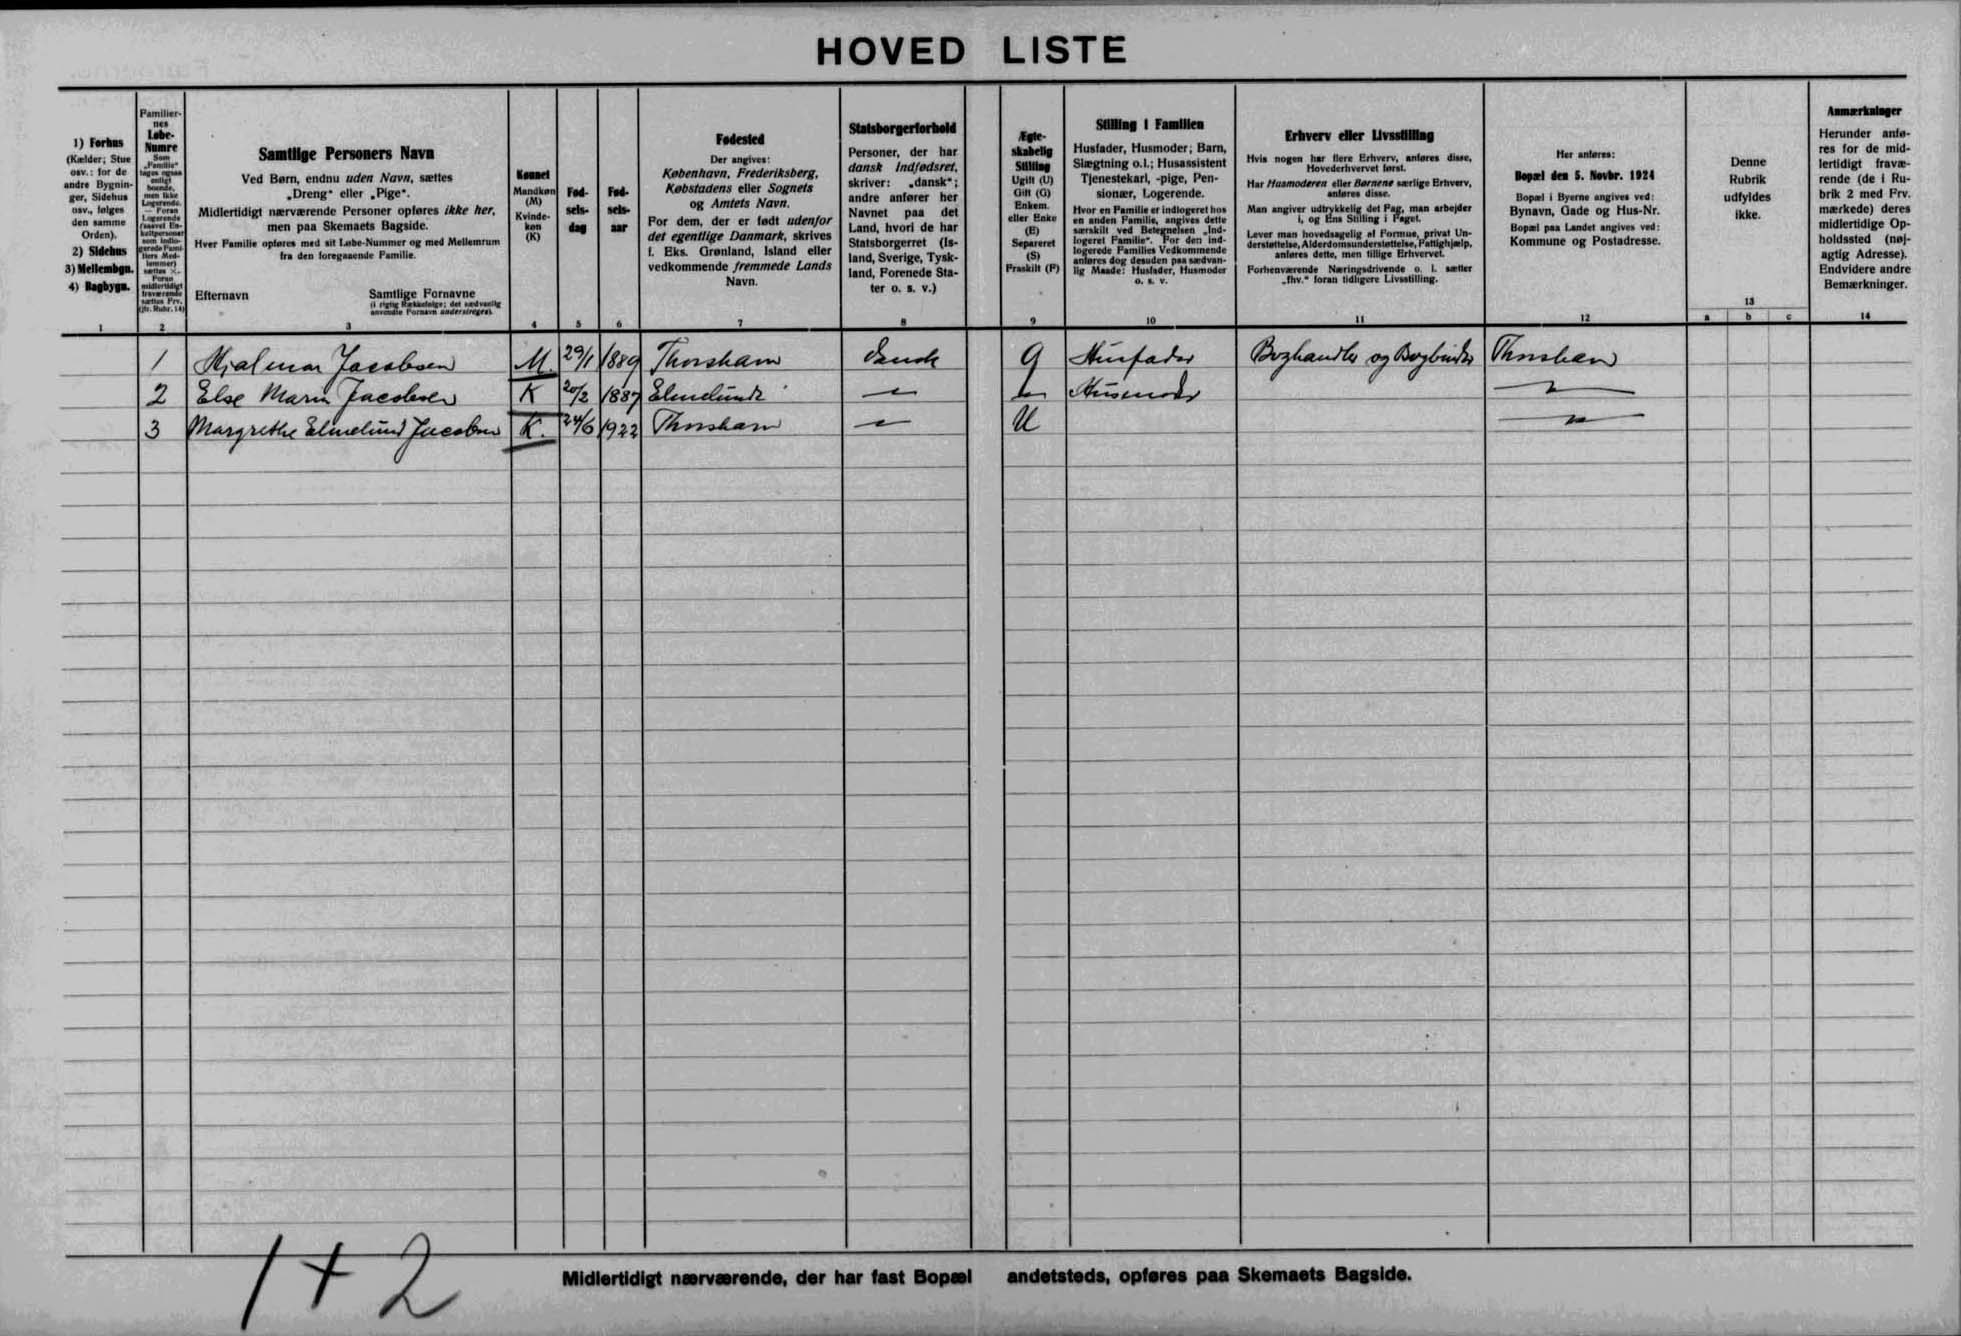 HOVED LISTE
1) Forhus
(Kælder; Stue
osv.: for de
andre Bygnin-
ger, Sidehus
osv., følges
den samme
Orden).
2) Sidehus
3) Mellembgn.
4) Bagbygn.
1
Familier-
nes
Løbe-
Numre
Som
„Familie“
tages ogsaa
enligt
boende,
men ikke
Logerende.
— Foran
Logerende
(saavel En-
keltpersoner
som indlo-
gerede Fami-
liers Med-
lemmer)
sættes ×.
Foran
midlertidigt
fraværende
sættes Frv.
(jfr. Rubr. 14)
2
Samtlige Personers Navn
Ved Børn, endnu uden Navn, sættes
„Dreng“ eller „Pige“.
Midlertidigt nærværende Personer opføres ikke her,
men paa Skemaets Bagside.
Hver Familie opføres med sit Løbe-Nummer og med Mellemrum
fra den foregaaende Familie.
Efternavn
Samtlige Fornavne
(i rigtig Rækkefølge; det sædvanlig
anvendte Fornavn understreges).
3
Kønnet
Mandkøn
(M)
Kvinde-
køn
(K)
4
Fød-
sels-
dag
5
Fød-
sels-
aar
6
Fødested
Der angives:
København, Frederiksberg,
Købstadens eller Sognets
og Amtets Navn.
For dem, der er født udenfor
det egentlige Danmark, skrives
f. Eks. Grønland, Island eller
vedkommende fremmede Lands
Navn.
7
Statsborgerforhold
Personer, der har
dansk Indfødsret,
skriver: „dansk“;
andre anfører her
Navnet paa det
Land, hvori de har
Statsborgerret (Is-
land, Sverige, Tysk-
land, Forenede Sta-
ter o. s. v.)
8
Ægte-
skabelig
Stilling
Ugift (U)
Gift (G)
Enkem.
eller Enke
(E)
Separeret
(S)
Fraskilt (F)
9
Stilling i Familien
Husfader, Husmoder; Barn,
Slægtning o.l.; Husassistent
Tjenestekarl, -pige, Pen-
sionær, Logerende.
Hvor en Familie er indlogeret hos
en anden Familie, angives dette
særskilt ved Betegnelsen „Ind-
logeret Familie“. For den ind-
logerede Families Vedkommende
anføres dog desuden paa sædvan-
lig Maade: Husfader, Husmoder
o. s. v.
10
Erhverv eller Livsstilling
Hvis nogen har flere Erhverv, anføres disse,
Hovederhvervet først.
Har Husmoderen eller Børnene særlige Erhverv,
anføres disse.
Man angiver udtrykkelig det Fag, man arbejder
i, og Ens Stilling i Faget.
Lever man hovedsagelig af Formue, privat Un-
derstøttelse, Alderdomsunderstøttelse, Fattighjælp,
anføres dette, men tillige Erhvervet.
Forhenværende Næringsdrivende o. l. sætter
„fhv.“ foran tidligere Livsstilling.
11
Her anføres:
Bopæl den 5. Novbr. 1924
Bopæl i Byerne angives ved:
Bynavn, Gade og Hus-Nr.
Bopæl paa Landet angives ved:
Kommune og Postadresse.
12
Denne
Rubrik
udfyldes
ikke.
13
a b c
Anmærkninger
Herunder anfø-
res for de mid-
lertidigt fravæ-
rende (de i Ru-
brik 2 med Frv.
mærkede) deres
midlertidige Op-
holdssted (nøj-
agtig Adresse).
Endvidere andre
Bemærkninger.
14
1 Hjalmar Jacobsen M. 29/1 1889 Thorshavn dansk G Husfader Boghandler og Bogbinder Thorshavn
2 Else Marie Jacobsen K 20/2 1887 Elmelunde — — Husmoder —
3 Margrethe Elmelund Jacobsen K. 24/6 1922 Thorshavn — U —
1+2
Midlertidigt nærværende, der har fast Bopæl andetsteds, opføres paa Skemaets Bagside.